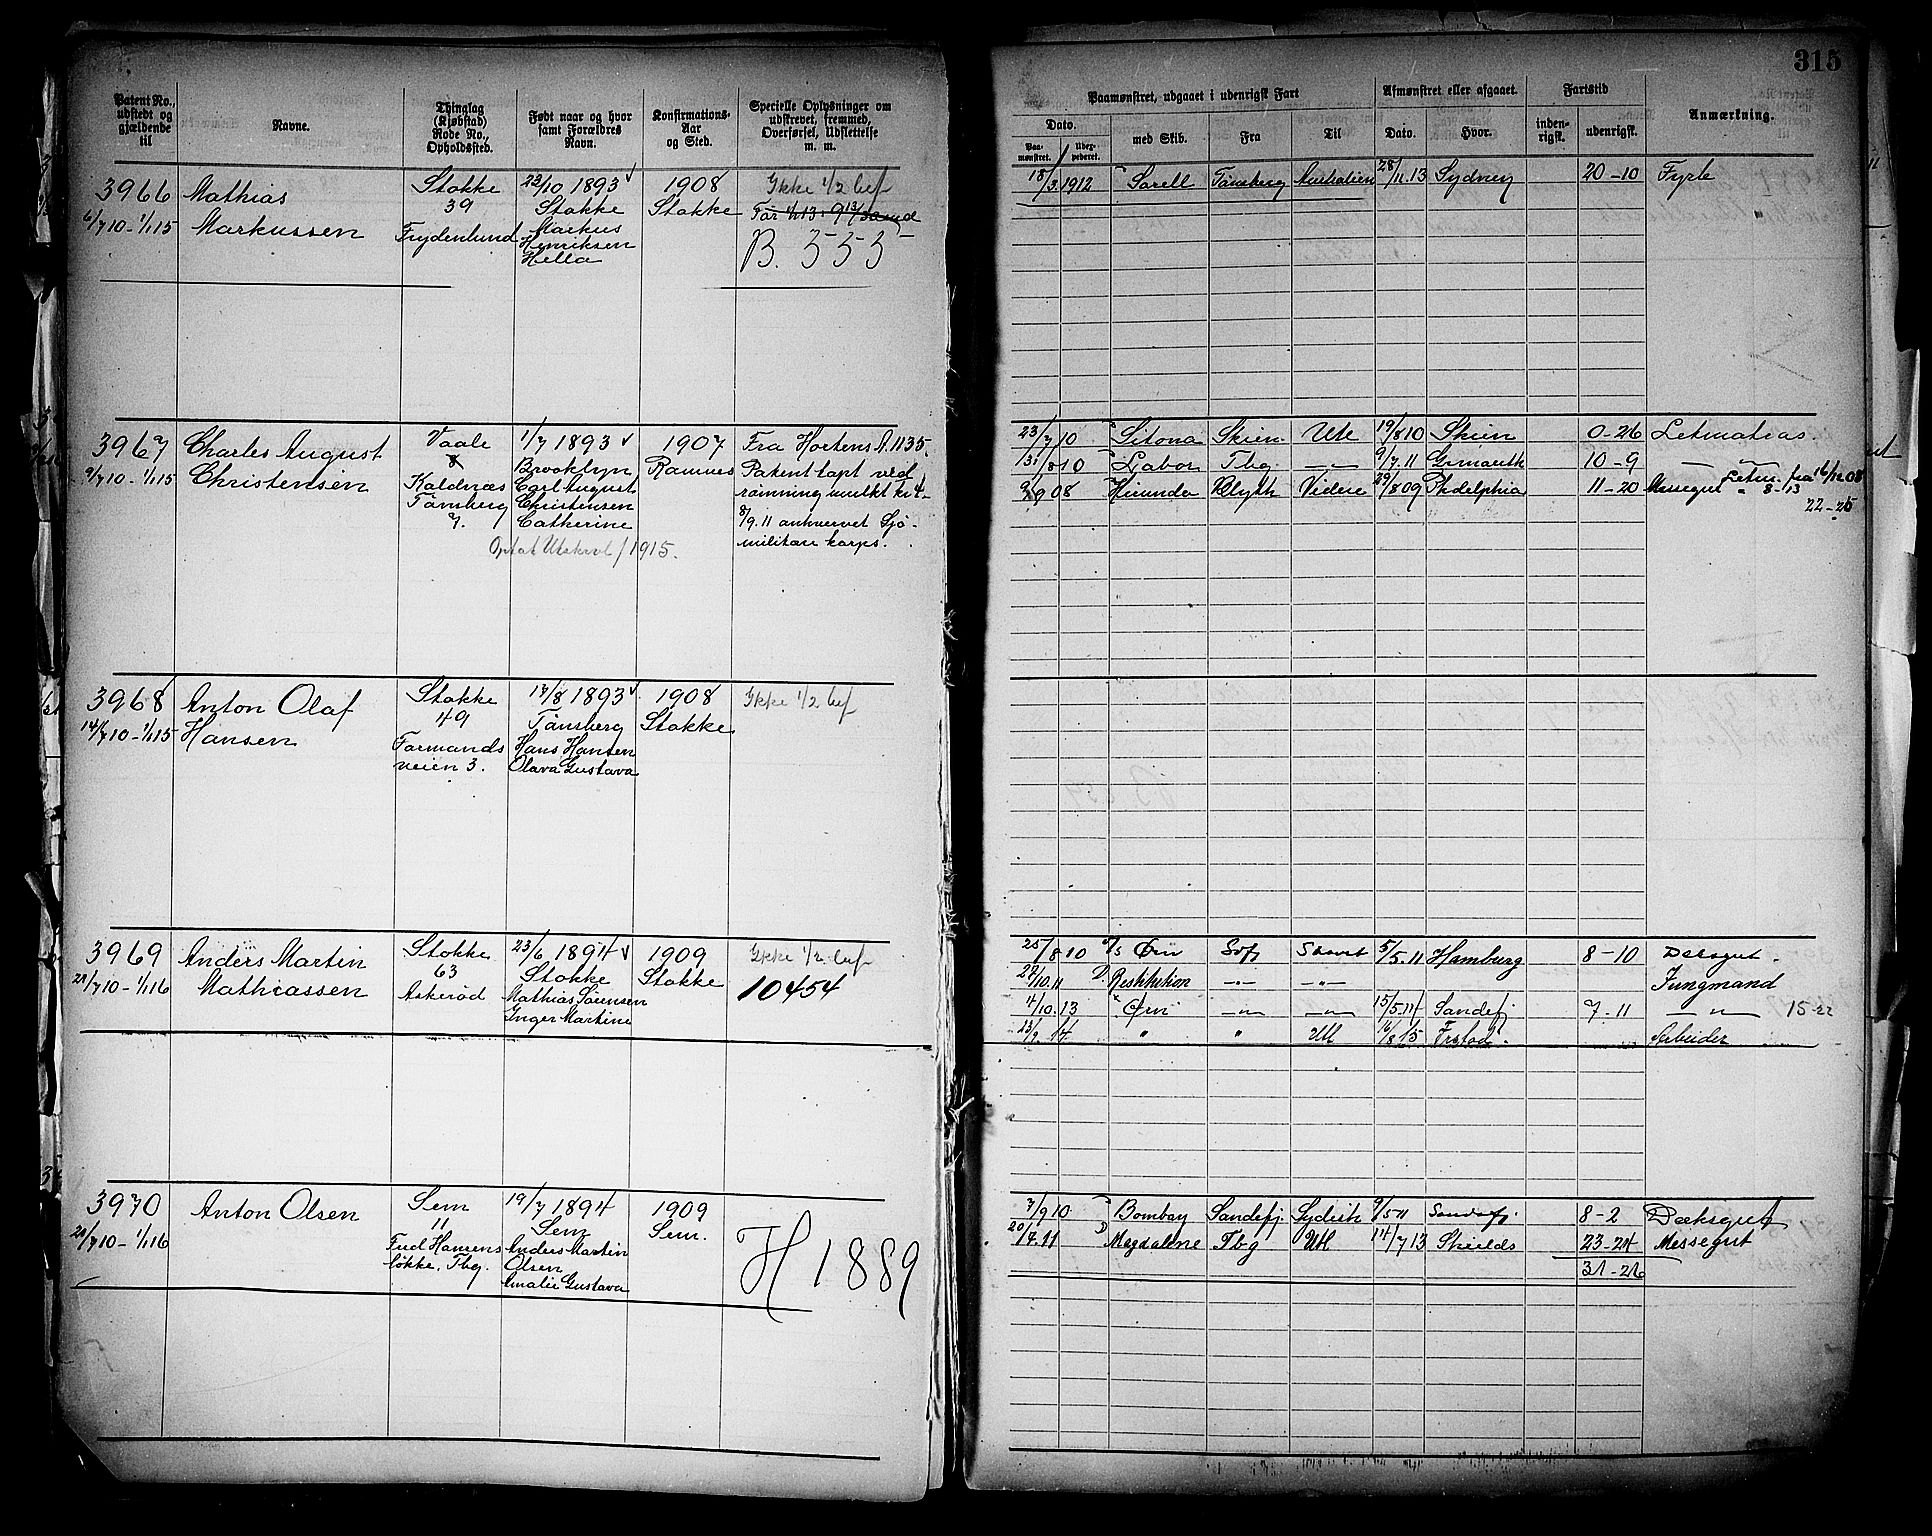 315
Patent No., udstedt og gjældende til
Navne.
Thinglag (Kjøbstad) Rode No., Opholdssted.
Født naar og hvor samt Forældres Navn.
Konfirmations-Aar og Sted.
Specielle Oplysninger om udskrevet, fremmed, Overførsel, Udslettelse m. m.
Paamønstret, udgaaet i udenrigsk Fart
Afmønstret eller afgaaet.
Fartstid
Anmærkning.
Dato.
Paa-mønstret.
Udex-pederet.
med Skib.
Fra
Til
Dato.
Hvor.
inden-rigsk.
udenrigsk.
3966
6/7 10 - 1/1 15
Mathias
Markussen
Stokke
39
Frydenlund
23/10 1893
Stokke
Markus
Henriksen
Hella
1908
Stokke
Ikke 1/2 bef
B. 555
18/3 1912 Sorell Tønsberg Australien 28/11 13 Sydney 20-10 Fyrb
3967
9/7 10 - 1/1 15
Charles August
Christensen
Vaale
8
Kaldnæs
Tønsberg
7.
1/7 1893
Brooklyn
Carl August
Christensen
Catherine
1907
Ramnes
Fra Hortens A. 1135.
Patent tapt ved
rømning mulkt kr 4-
8/9. 11 anhvervet Sjø-
militære korps.
1915.
23/7 10 Sitona Skien Ute 19/8 10 Skien 0-26 Letmatros.
31/8 10 Labor Tbg. 9/7 11 10-9
08 Hirundo Blyth Videre 29/8 09 Phdelphia 11-20 Messegut fra 16/12 08
8-13
22-25
3968
14/7 10 - 1/1 15
Anton Olaf
Hansen
Stokke
49
Farmands
veien 3.
17/8 1893
Tønsberg
Hans Hansen
Olava Gustava
1908
Stokke
Ikke 1/2 bef
3969
21/7 10 - 1/1 16
Anders Martin
Mathiassen
Stokke
63
Askerød
23/6 1894
Stokke
Mathias Sørensen
Inger Martine
1909
Stokke
Ikke 1/2 bef
10454
25/8 10 Ørn 5/5. 11 Hamburg 8-10 Deksgut.
28/10. 11 D. Restitution -"- -"- Jungmand
4/10. 13 Ørn -"- -"- 15/5. 14 Sandefj 7-11 -"- 15-22
13/9. 14 " " Utl 16/8 15 Frstad. Arbeider
3970
21/7 10 - 1/1 16
Anton Olsen
Sem
11
Fred Hansens
løkke. Tbg.
19/7 1894
Sem
Anders Martin
Olsen
Amalie Gustava
1909
Sem.
H 1889
7/9 10 Bombay Sandefj. Sydish 9/5 11 Sandefj. 8-2 Dæksgut
20/7. 11 D Magdalene Tbg Utl 14/7 13 Shields 23-24 Messegut
31-26